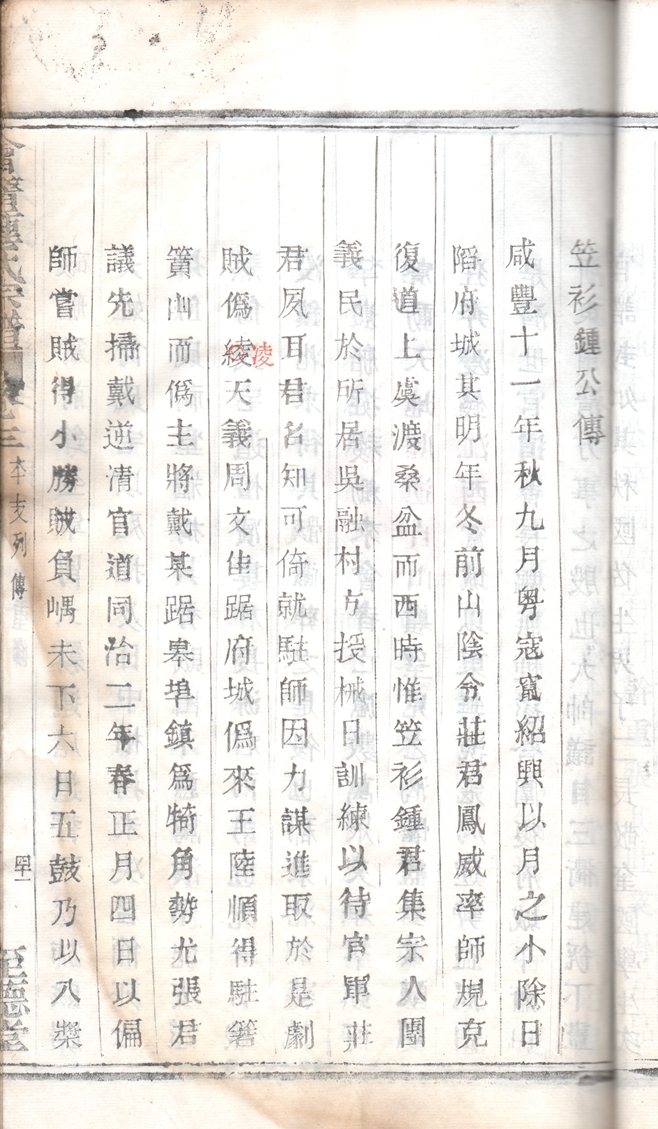 笠衫鍾公傳
咸豐十一年秋九月粤寇竄紹興以月之小除日
陷府城其明年冬前山陰令莊君鳳威率師規克
復道上虞渡桑盆而西時惟笠衫鍾君集宗人團
義民於所居吳融村方授械日訓練以待官軍莊
君夙耳君名知可倚就駐師因力謀進取於是劇
賊僞綾天義周文佳踞府城僞來王陸順得駐箬
凌
簣山而僞主將戴某踞皋埠鎮爲犄角勢尤張君
議先掃戴逆清官道同治二年春正月四日以偏
師嘗賊得小勝賊負嵎未下六日五鼓乃以八槳
會稽 氏宗譜
卷三 本支列傳
至德堂